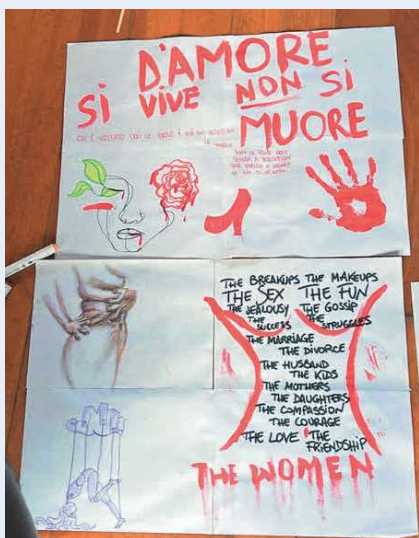 D'AMORE
SI VIVE NON SI
MUORE
THE BREAKUPS THE MAKEUPS
THE SEX THE FUN
THE JEALOUSY THE GOSSIP
THE SUCCESS THE STRUGGLES
THE MARRIAGE
THE DIVORCE
THE HUSBAND
THE KIDS
THE MOTHERS
THE DAUGHTERS
THE COMPASSION
THE COURAGE
THE LOVE THE FRIENDSHIP
THE WOMEN